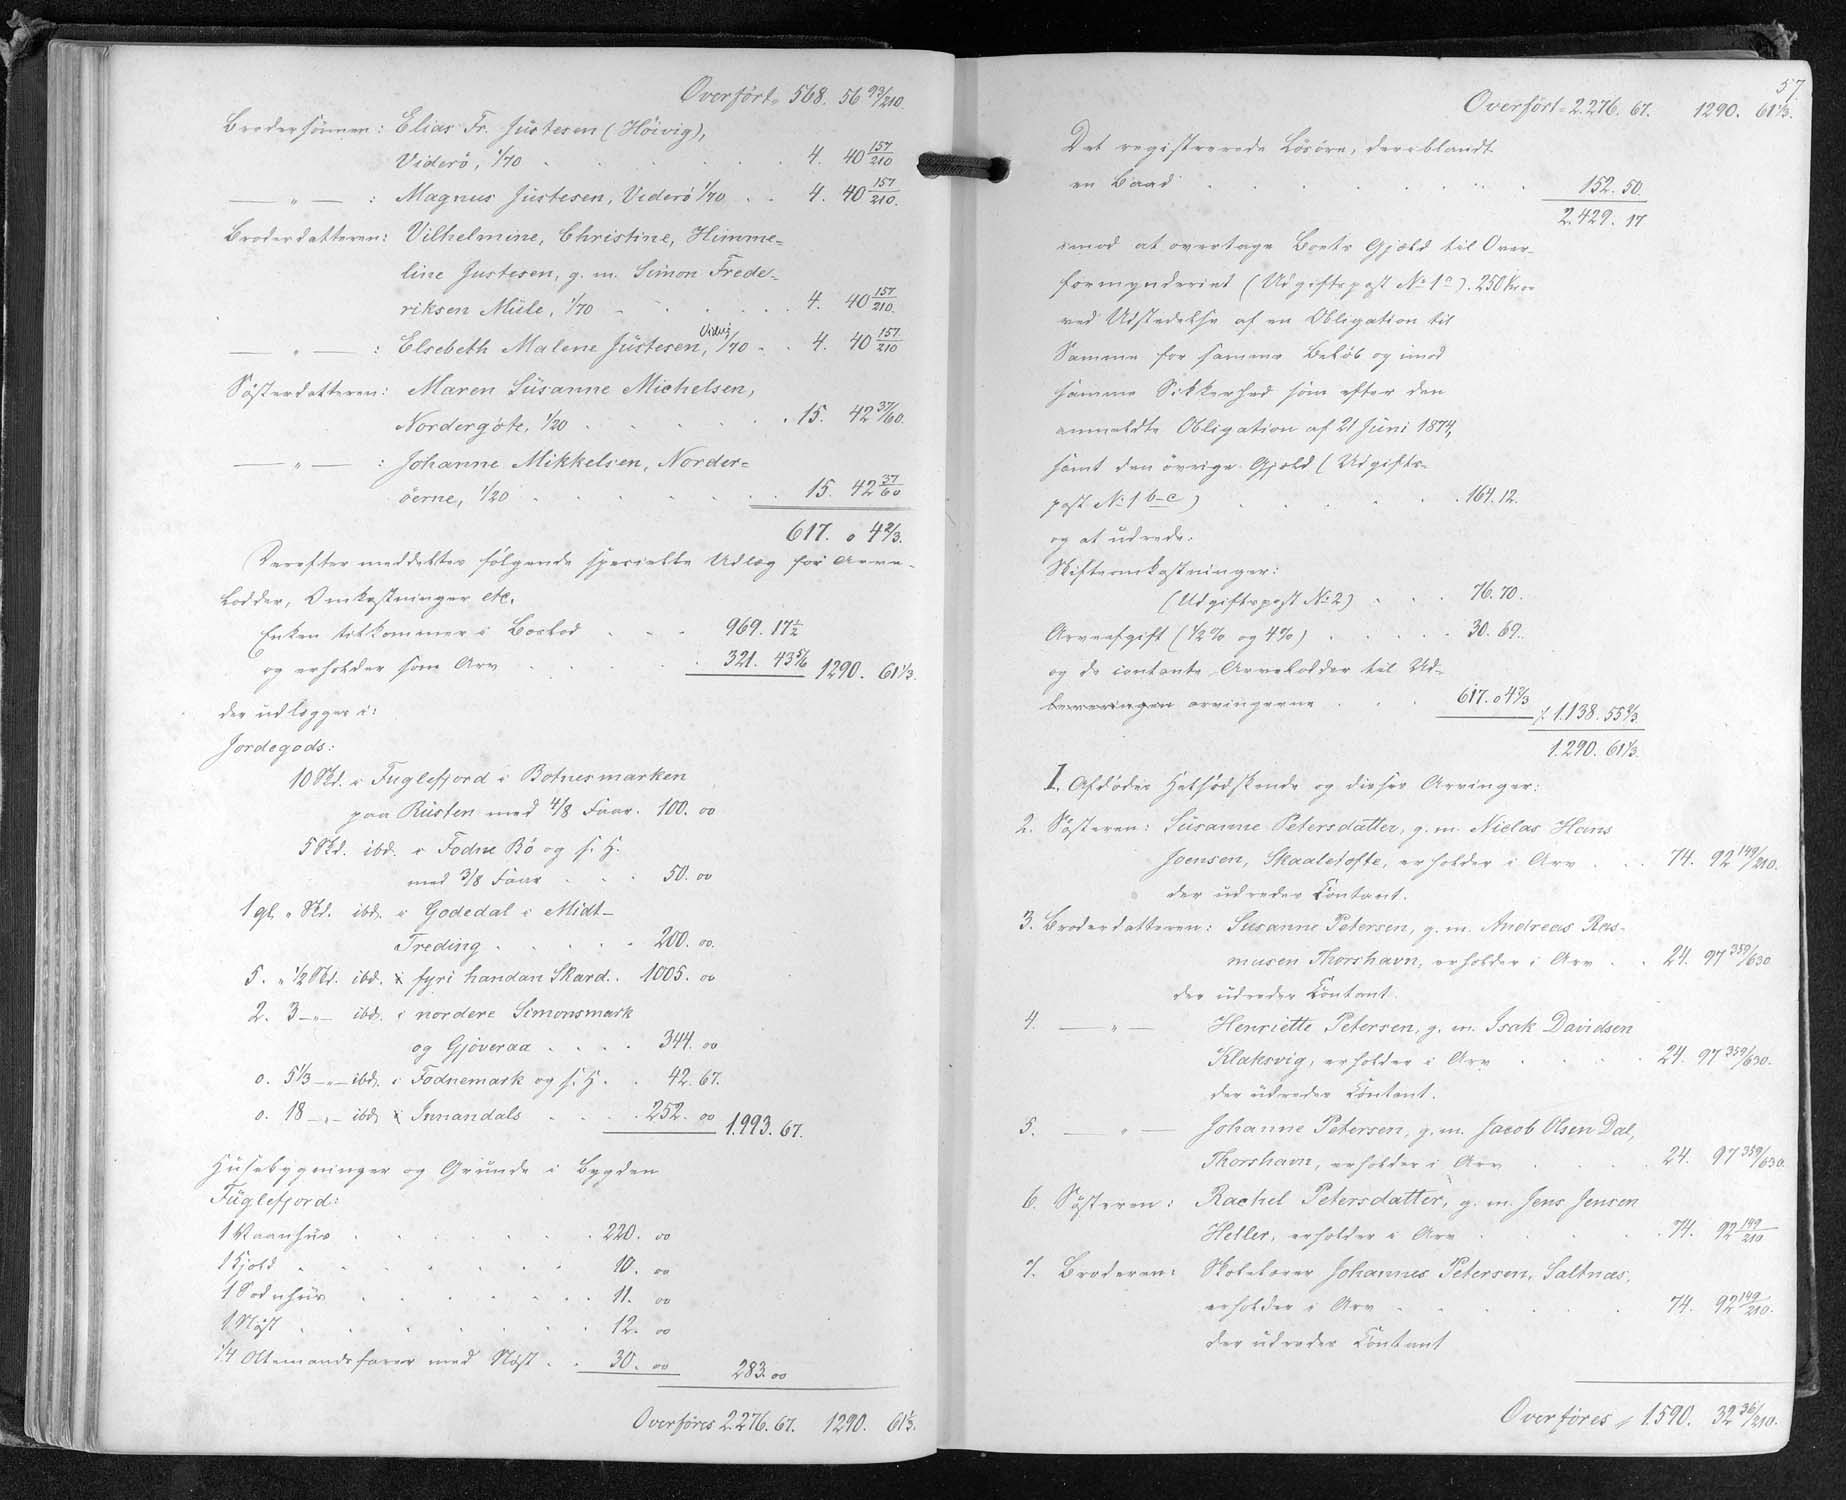 Overført 568. 56 93/210.
Brodersönnen: Elias Fr. Justesen (Höivig),
Viderö, 1/70 . . . . . . 4. 40 157/210
— " — : Magnus Justesen, Viderö 1/70 . . 4. 40 157/210.
Broderdatteren: Vilhelmine, Christine, Himme=
line Justesen, g. m. Simon Frede=
riksen Müle, 1/70 . . . . . 4. 40 157/210.
— " — : Elsebeth Malene Justesen, 1/70 . . 4. 40 157/210
Sösterdatteren: Maren Susanne Michelsen,
Nordergöte, 1/20 . . . . . . 15. 42 37/60.
— " — : Johanne Mikkelsen, Norder=
öerne, 1/20 . . . . . . 15. 42 37/60
617. 04 2/3.
Derefter meddeltes følgende specielle Udlæg for Arve-
Lodder, Omkostninger etc.
Enken tilkommer i Boslod . . . 969. 17 1/2
og erholder som Arv . . . . 321. 43 5/6 1290. 61 1/3.
der udlægges i:
Jordegods:
10 Skd. i Fuglefjord i Botnesmarken
paa Rüsten med 4/8 Faar. 100. 00
5 Skd. ibd. i Fodne Bö og s. H.
med 3/8 Faar . . . 50. 00
1 gl. " Skd. ibd. i Godedal i Midt-
Treding . . . . . 200. 00.
5. " 1/2 Skd. ibd. fyri handan Skard. . 1005. 00
2. 3 — " — ibd. i nordere Simonsmark
og Gjöveraa . . . . 344. 00
0. 5 1/3 — " — ibd. i Fodnemark og s. H. . 42. 67.
0. 18 — " — ibd. Innandals . . . . 252. 00 1.993. 67.
Husebygninger og Grunde i Bygden
Fuglefjord:
1 Vaanhus . . . . . . . 220. 00
1 Hjold . . . . . . . 10. 00
1 Sodnhus . . . . . . . 11. 00
1 Nöst . . . . . . . 12. 00
1/4 Ottemandsfarer med Nöst . . 30. 00 283. 00
Overføres 2.276. 67. 1290. 61 1/3.
57
Overført 2.276. 67. 1290. 61 1/3.
Det registrerede Lösöre, deriblandt
en Baad . . . . . . . . 152. 50.
2.429. 17
imod at overtage Boets Gjæld til Over-
formynderiet (Udgiftspost No 1 a). 250 Kroner
ved Udstedelse af en Obligation til
Samme for samme Beløb og imod
samme Sikkerhed som efter den
anmeldte Obligation af 21 Juni 1874,
samt den övrige Gjæld (Udgifts-
post No 1 b-c) . . . . . 164. 12.
og at udrede:
Skifteomkostninger:
(Udgiftspost No 2) . . . 76. 70.
Arveafgift (1/2 % og 4 %) . . . . . 30. 69.
og de contante Arvelodder til Ud-
arvingerne . . . 617. 04 2/3 ÷ 1.138. 55 2/3.
1.290. 61 1/3.
I. Afdödes Helsödskende og disses Arvinger:
2. Sösteren: Susanne Petersdatter, g. m. Niclas Hans
Joensen, Skaaletofte, erholder i Arv . . . 74. 92 149/210.
der udredes Contant.
3. Broderdatteren: Susanne Petersen, g. m. Andreas Ras-
musen Thorshavn, erholder i Arv . . 24. 97 359/630
der udredes Contant.
4. — " — Henriette Petersen, g. m. Isak Davidsen
Klaksvig, erholder i Arv . . . . . 24. 97 359/630.
der udredes Contant.
5. — " — Johanne Petersen, g. m. Jacob Olsen Dal,
Thorshavn, erholder i Arv . . . . . 24. 97 359/630.
6. Sösteren: Rachel Petersdatter, g. m. Jens Jensen
Heller, erholder i Arv . . . . . 74. 92 149/210
7. Broderen: Skolelærer Johannes Petersen, Saltnæs,
erholder i Arv . . . . . . 74. 92 149/210.
der udredes Contant
Overføres 1.590. 32 36/210.